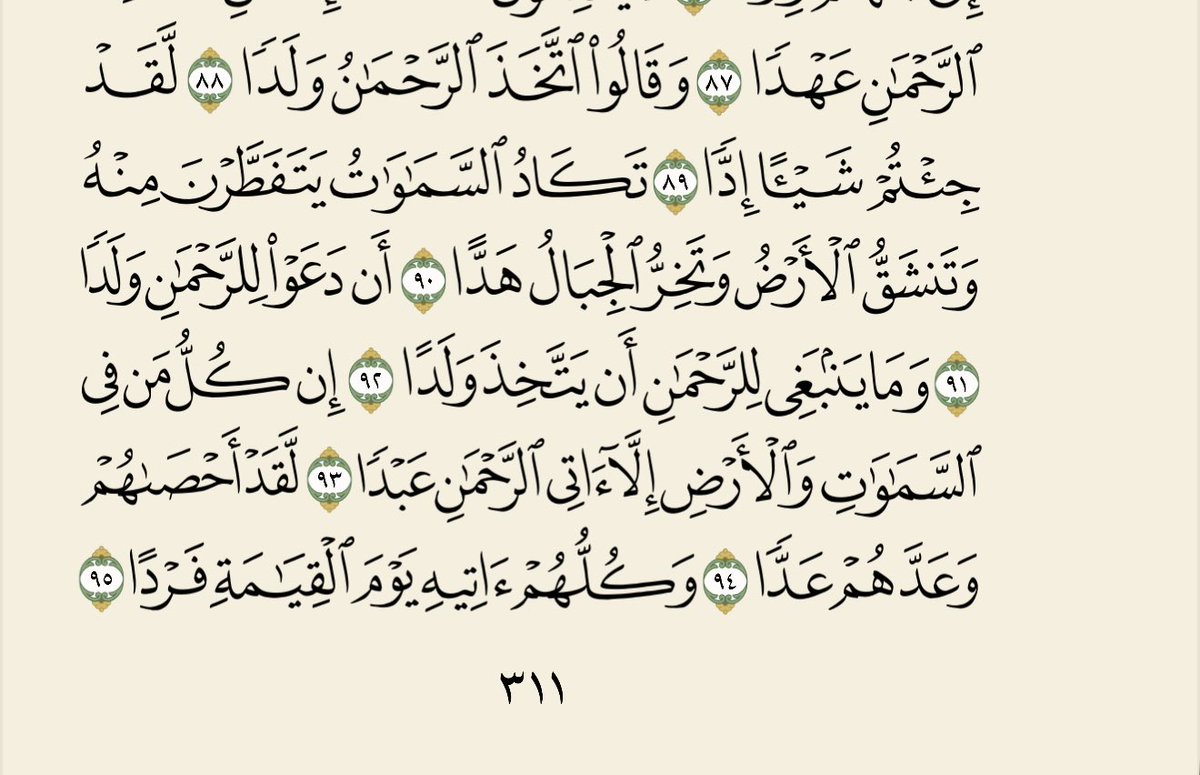 ٱلرَّحْمَٰنِ عَهْدًا ٨٧ وَقَالُوا۟ ٱتَّخَذَ ٱلرَّحْمَٰنُ وَلَدًا ٨٨ لَّقَدْ
جِئْتُمْ شَيْـًٔا إِدًّا ٨٩ تَكَادُ ٱلسَّمَٰوَٰتُ يَتَفَطَّرْنَ مِنْهُ
وَتَنشَقُّ ٱلْأَرْضُ وَتَخِرُّ ٱلْجِبَالُ هَدًّا ٩٠ أَن دَعَوْا۟ لِلرَّحْمَٰنِ وَلَدًا
٩١ وَمَا يَنۢبَغِى لِلرَّحْمَٰنِ أَن يَتَّخِذَ وَلَدًا ٩٢ إِن كُلُّ مَن فِى
ٱلسَّمَٰوَٰتِ وَٱلْأَرْضِ إِلَّآ ءَاتِى ٱلرَّحْمَٰنِ عَبْدًا ٩٣ لَّقَدْ أَحْصَىٰهُمْ
وَعَدَّهُمْ عَدًّا ٩٤ وَكُلُّهُمْ ءَاتِيهِ يَوْمَ ٱلْقِيَٰمَةِ فَرْدًا ٩٥
٣١١